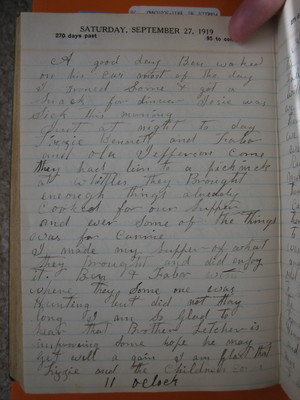 SATURDAY, SEPTEMBER 27, 1919
270 days past 95 to come
A good day Ben worked
on his car most of the day
I sewed some & got a
snack for dinner Josie was
sick this morning
Just at night to day
Lizzie Bennett and Fabor
and Ola Jefferson came
they had bin to a picknick
at Whiffles They Brought
enough things already
cooked for our supper
and
some of the things
was for Cannie
I made my supper of what
they Brought and did enjoy
it. Ben & Fabor went
where they some one was
Hunting but did not stay
long I am so glad to
hear that Brother Letcher is
improving some hope he may
get well a gain I am glad that
Lizzie and the Children
11 oclock